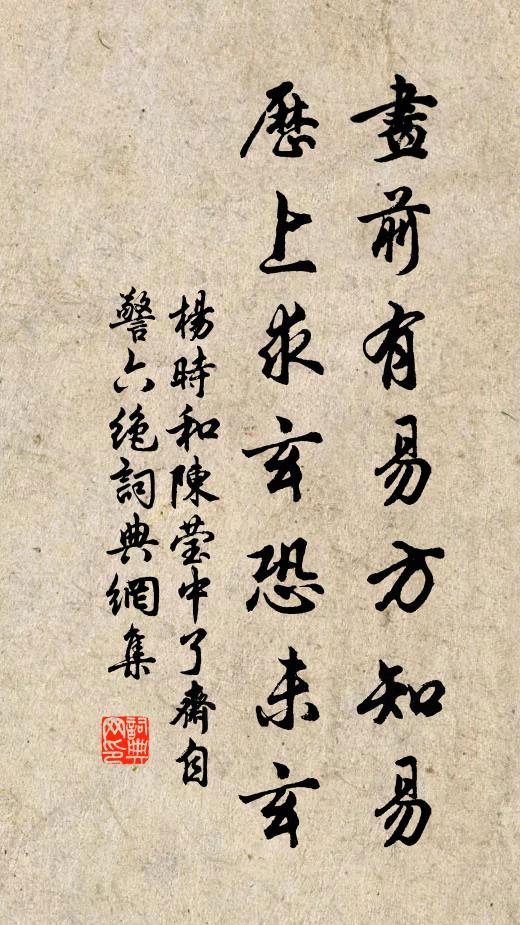 畫前有易方知易
歷上求玄恐未玄
楊時和陳瑩中了齋自
警六絕詞典網集
詞典
网印